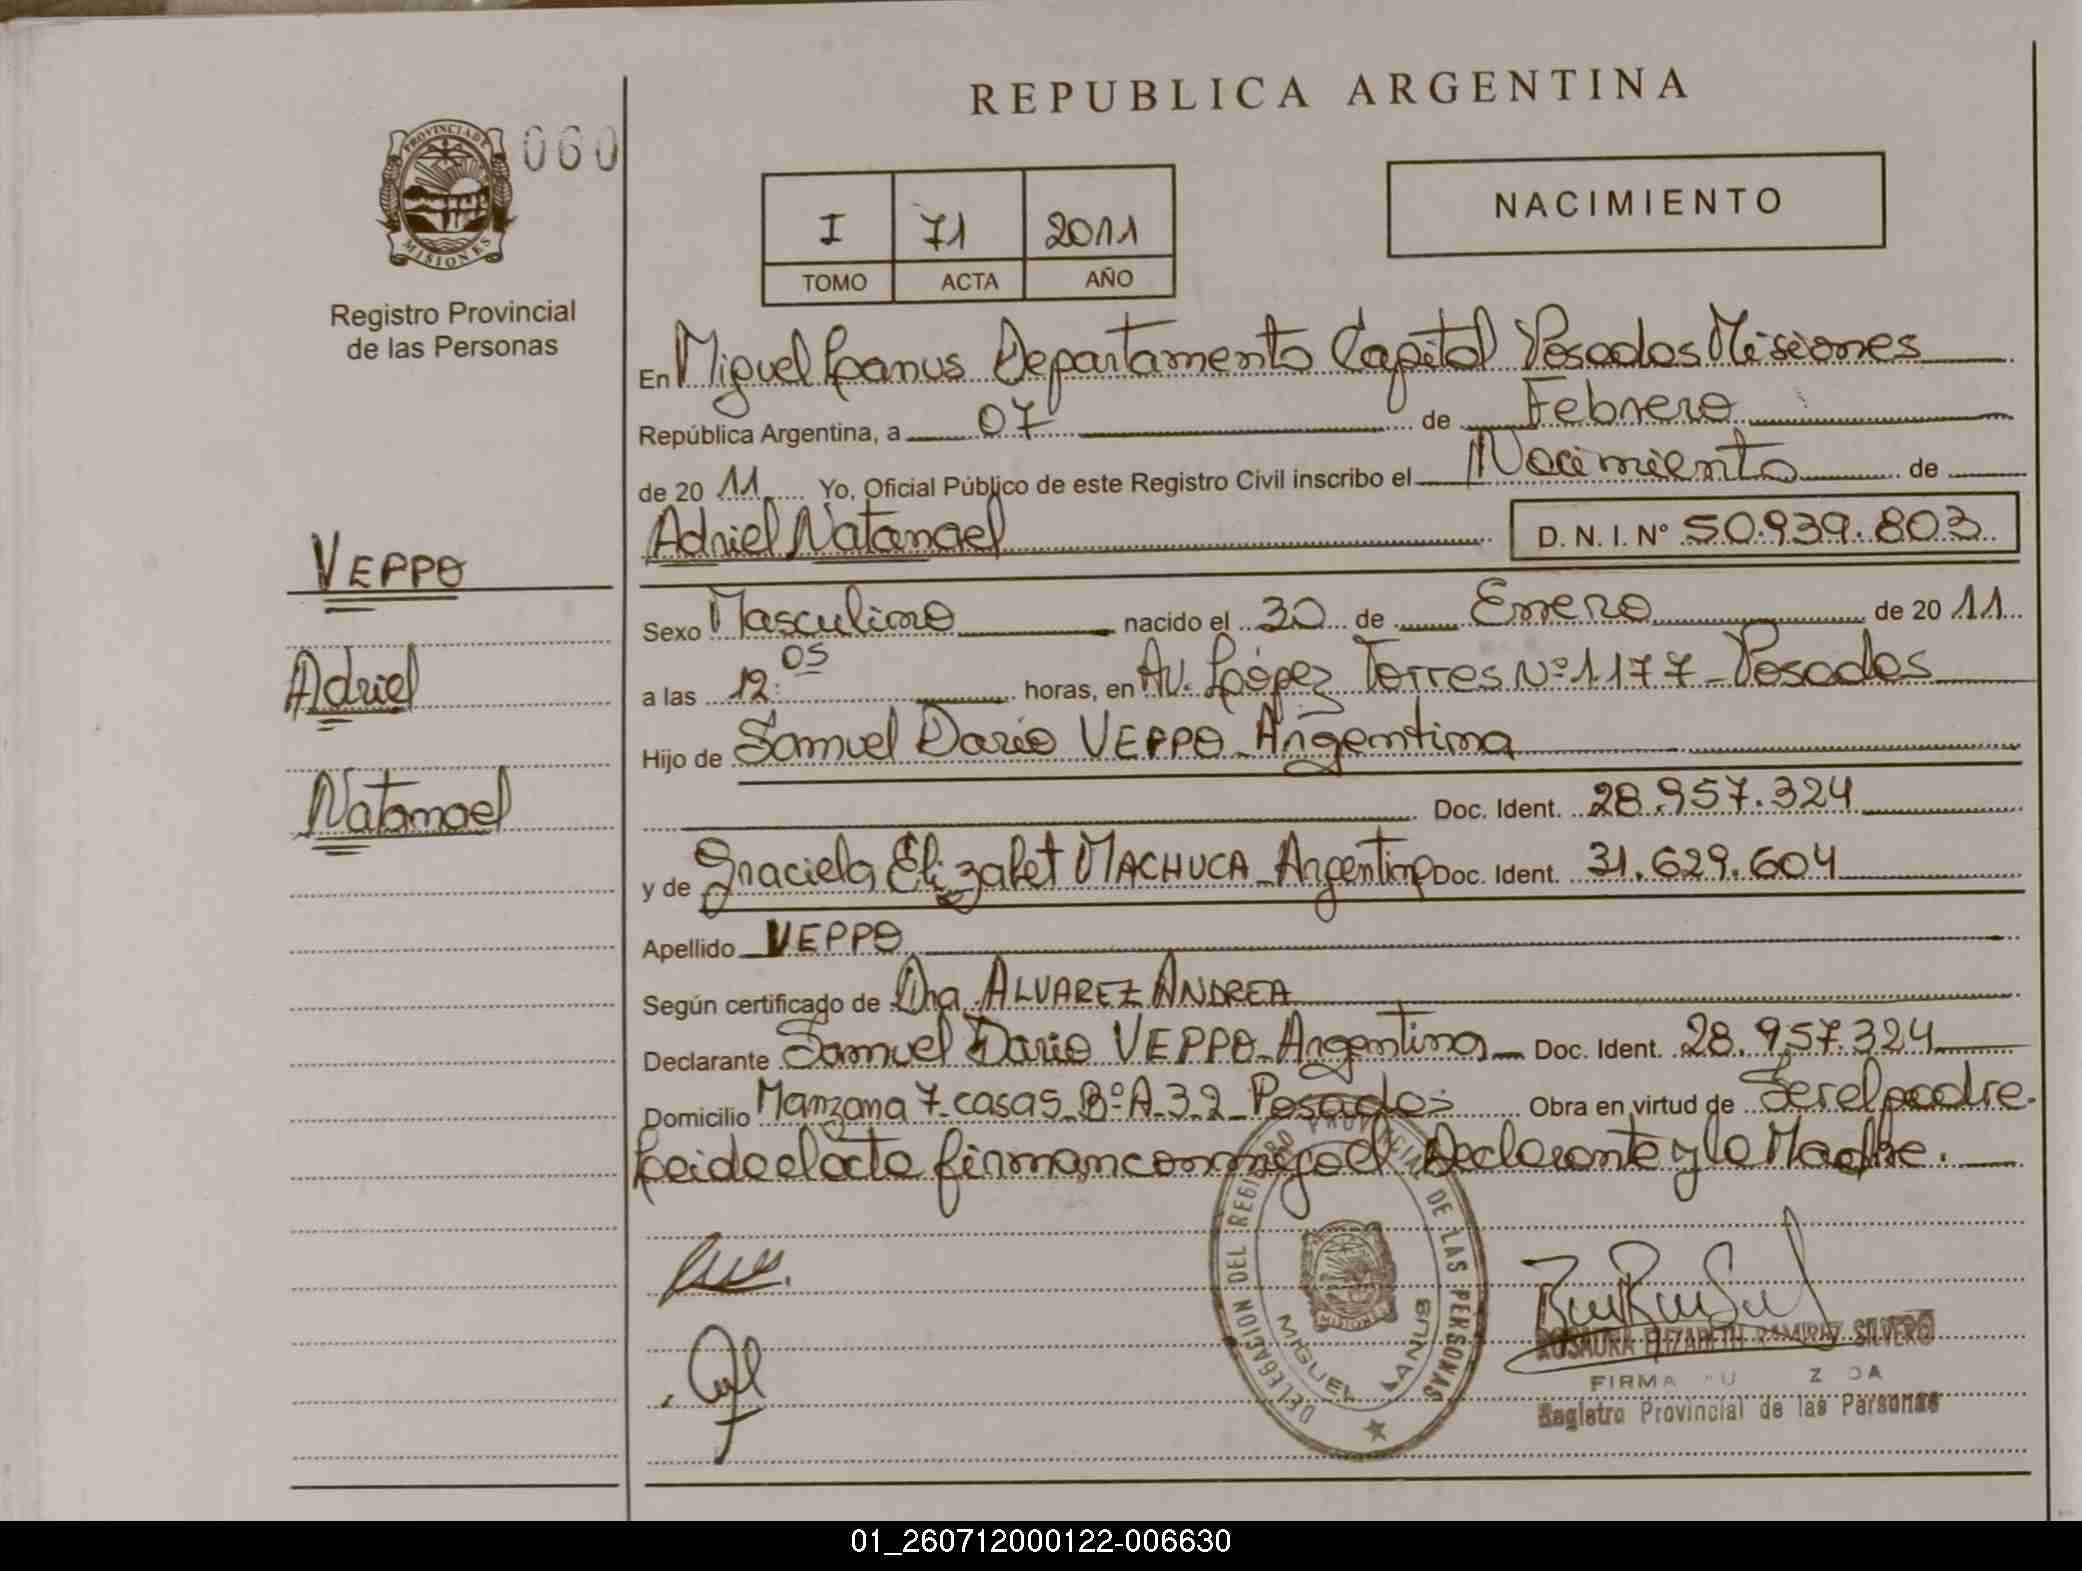 REPUBLICA ARGENTINA
060
PROVINCIA DE
MISIONES
Registro Provincial
de las Personas
I 71 2011
TOMO ACTA AÑO
NACIMIENTO
En Miguel Lanus Departamento Capital Posadas Misiones
República Argentina, a 07 de Febrero
de 20 11 Yo, Oficial Público de este Registro Civil inscribo el Nacimiento de
Adriel Natanael D.N.I. Nº 50.939.803
VEPPO
Adriel
Natanael
Sexo Masculino nacido el 30 de Enero de 20 11
a las 12:05 horas, en Av. López Torres Nº 1177 - Posadas
Hijo de Samuel Dario VEPPO - Argentina
Doc. Ident. 28.957.324
y de Graciela Elizabet MACHUCA - Argentina Doc. Ident. 31.629.604
Apellido VEPPO
Según certificado de Dra. ALVAREZ ANDREA
Declarante Samuel Dario VEPPO - Argentina - Doc. Ident. 28.957.324
Domicilio Manzana 7 - casa 5 - Bº A-3-2 - Posadas Obra en virtud de Ser el padre.
Leida el acta firman conmigo el Declarante y la Madre.
DELEGACION DEL REGISTRO PROVINCIAL DE LAS PERSONAS
MISIONES
MIGUEL LANUS
ROSAURA ELIZABETH RAMIREZ SILVERO
FIRMA
Registro Provincial de las Personas
01_260712000122-006630